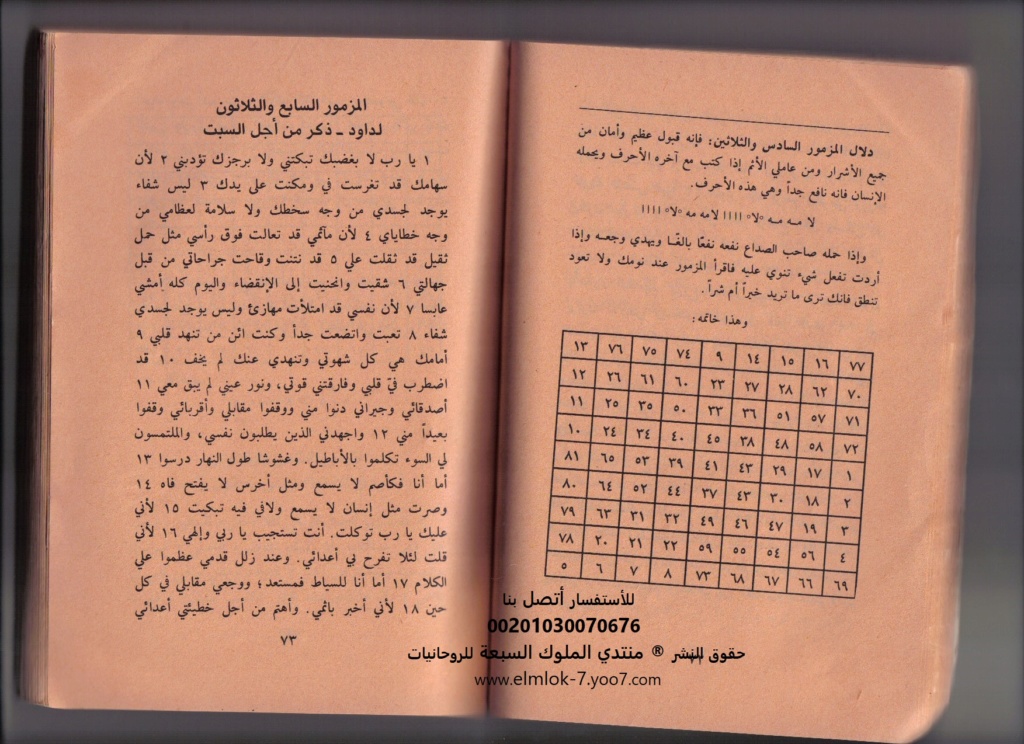 دلال المزمور السادس والثلاثين: فإنه قبول عظيم وأمان من
جميع الأشرار ومن عاملي الأثم إذا كتب مع آخره الأحرف ويحمله
الإنسان فانه نافع جداً وهي هذه الأحرف.
وإذا حمله صاحب الصداع نفعه نفعًا بالغًا ويهدي وجعه وإذا
أردت تفعل شيء تنوي عليه فاقرأ المزمور عند نومك ولا تعود
تنطق فانك ترى ما تريد خيراً أم شراً.
وهذا خاتمه:
٧٧ ١٦ ١٥ ١٤ ٩ ٧٤ ٧٥ ٧٦ ١٣
٧٠ ٦٢ ٢٨ ٢٧ ٢٣ ٦٠ ٦١ ٢٦ ١٢
٧١ ٥٧ ٥١ ٣٦ ٣٣ ٥٠ ٣٥ ٢٥ ١١
٧٢ ٥٨ ٤٨ ٣٨ ٤٥ ٤٠ ٣٤ ٢٤ ١٠
١ ١٧ ٢٩ ٤٣ ٤١ ٣٩ ٥٣ ٦٥ ٨١
٢ ١٨ ٣٠ ٤٣ ٣٧ ٤٤ ٥٢ ٦٤ ٨٠
٣ ١٩ ٤٧ ٤٦ ٤٩ ٣٢ ٣١ ٦٣ ٧٩
٤ ٥٦ ٥٤ ٥٥ ٥٩ ٢٢ ٢١ ٢٠ ٧٨
٦٩ ٦٦ ٦٧ ٦٨ ٧٣ ٨ ٧ ٦ ٥
المزمور السابع والثلاثون
لداود ـ ذكر من أجل السبت
١ يا رب لا بغضبك تبكتني ولا برجزك تؤدبني ٢ لأن
سهامك قد تغرست في ومكنت على يدك ٣ ليس شفاء
يوجد لجسدي من وجه سخطك ولا سلامة لعظامي من
وجه خطاياي ٤ لأن مآثمي قد تعالت فوق رأسي مثل حمل
ثقيل قد ثقلت علي ٥ قد نتنت وقاحت جراحاتي من قبل
جهالتي ٦ شقيت وانحنيت إلى الإنقضاء واليوم كله أمشي
عابسا ٧ لأن نفسي قد امتلأت مهازئ وليس يوجد لجسدي
شفاء ٨ تعبت واتضعت جداً وكنت ائن من تنهد قلبي ٩
أمامك هي كل شهوتي وتنهدي عنك لم يخف ١٠ قد
اضطرب فيّ قلبي وفارقتني قوتي، ونور عيني لم يبق معي ١١
أصدقائي وجيراني دنوا مني ووقفوا مقابلي وأقربائي وقفوا
بعيداً مني ١٢ واجهدني الذين يطلبون نفسي، والملتمسون
لي السوء تكلموا بالأباطيل. وغشوشا طول النهار درسوا ١٣
أما أنا فكأصم لا يسمع ومثل أخرس لا يفتح فاه ١٤
وصرت مثل إنسان لا يسمع ولافي فيه تبكيت ١٥ لأني
عليك يا رب توكلت. أنت تستجيب يا ربي وإلهي ١٦ لأني
قلت لئلا تفرح بي أعدائي. وعند زلل قدمي عظموا علي
الكلام ١٧ أما أنا للسياط فمستعد؛ ووجعي مقابلي في كل
حين ١٨ لأني أخبر باثمي. وأهتم من أجل خطيئتي أعدائي
٧٣
للأستفسار أتصل بنا
00201030070676
حقوق النشر ® منتدي الملوك السبعة للروحانيات
www.elmlok-7.yoo7.com